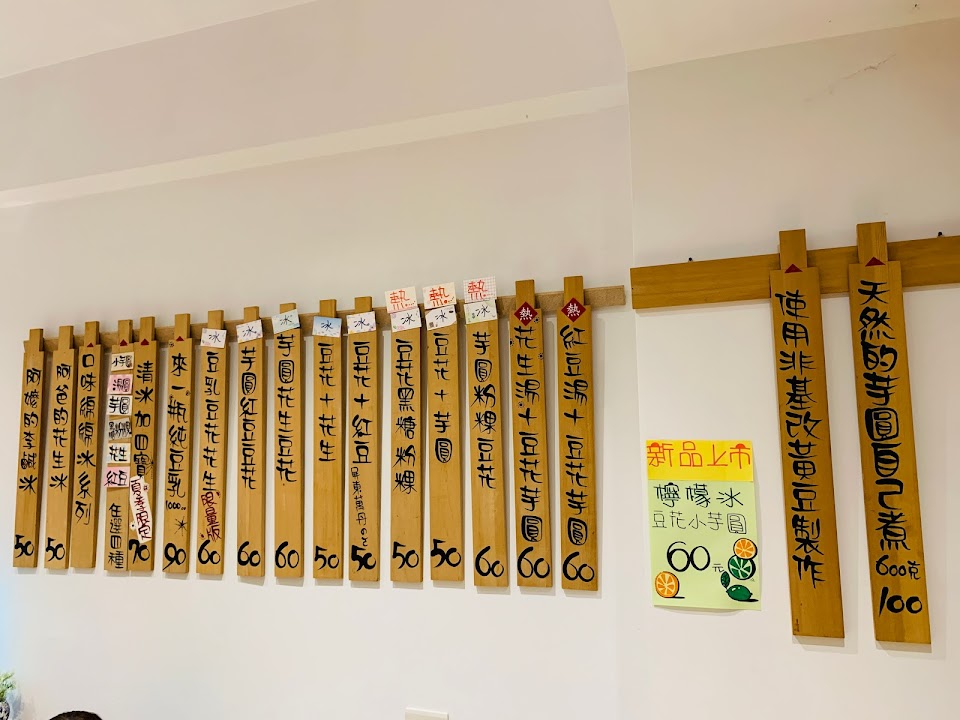 天然的芋圓自己煮
600克
100
使用非基改黃豆製作
新品上市
檸檬冰
豆花小芋圓
60元
熱
紅豆湯+豆花芋圓
60
熱
花生湯+豆花芋圓
60
熱
冰
芋圓粉粿豆花
60
熱
冰
豆花+芋圓
50
熱
冰
豆花黑糖粉粿
50
冰
豆花+紅豆
屏東萬丹の
50
冰
豆花+花生
50
冰
芋圓花生豆花
60
冰
芋圓紅豆豆花
60
冰
豆乳豆花花生
限量版
60
來一瓶純豆乳
1000cc
冰
90
清冰加四寶
夏季限定
70
小芋圓
湯圓
芋圓
花生
紅豆
任選四種
口味綿綿冰系列
阿爸的花生冰
50
阿嬤的李鹹冰
50